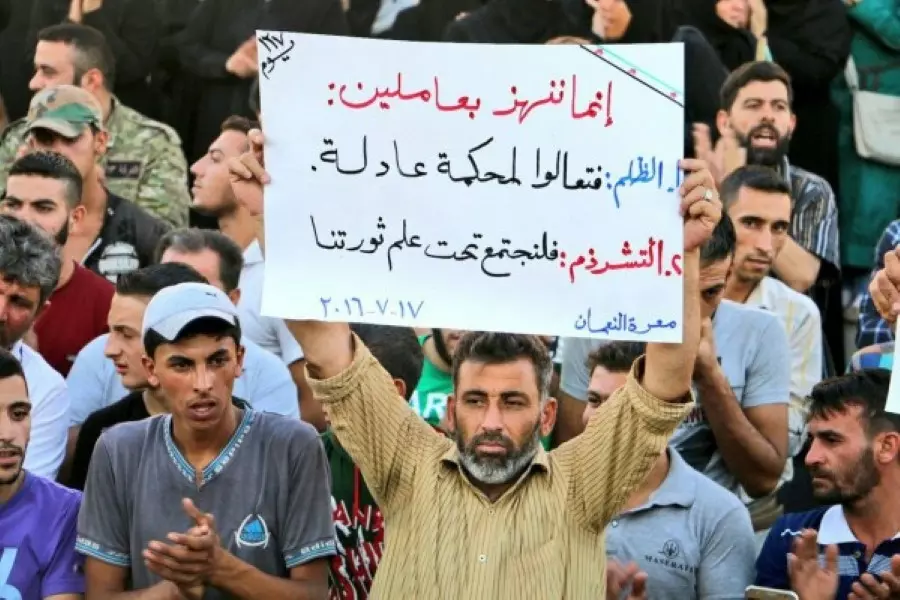 ١٢٧
يوم
إنما ننهز بعاملين:
١. الظلم: فتعالوا لمحكمة عادلة.
٢. التشرذم: فلنجتمع تحت علم ثورتنا
معرة النعمان
٢٠١٦-٧-١٧
MASERATI